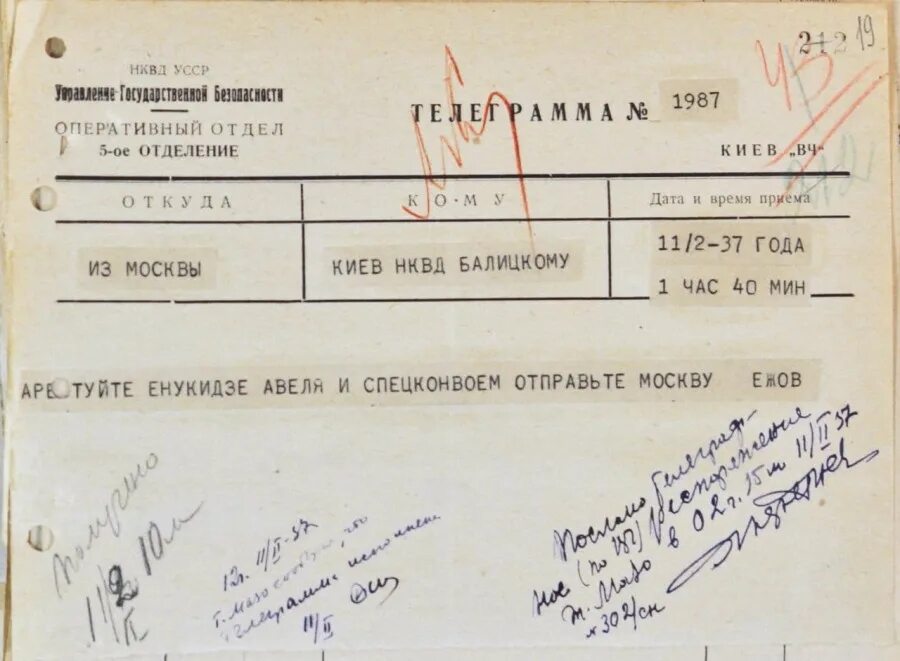 212 19
43
212
НКВД УССР
Управление Государственной Безопасности
ОПЕРАТИВНЫЙ ОТДЕЛ
5-ое ОТДЕЛЕНИЕ
ТЕЛЕГРАММА № 1987
КИЕВ „ВЧ“
ОТКУДА КОМУ Дата и время приема
ИЗ МОСКВЫ КИЕВ НКВД БАЛИЦКОМУ 11/2-37 ГОДА
1 ЧАС 40 МИН
АРЕ ТУЙТЕ ЕНУКИДЗЕ АВЕЛЯ И СПЕЦКОНВОЕМ ОТПРАВЬТЕ МОСКВУ ЕЖОВ
Получено
2 ч 10 м
11/II
12ч. 11/II-37
т. Мазо сообщил, что
телеграмма исполнена
11/II
Послано телеграф-
ное (по ВЧ) распоряжение
т. Мазо в 02 ч. 15 м 11/II 37
№ 302/сн